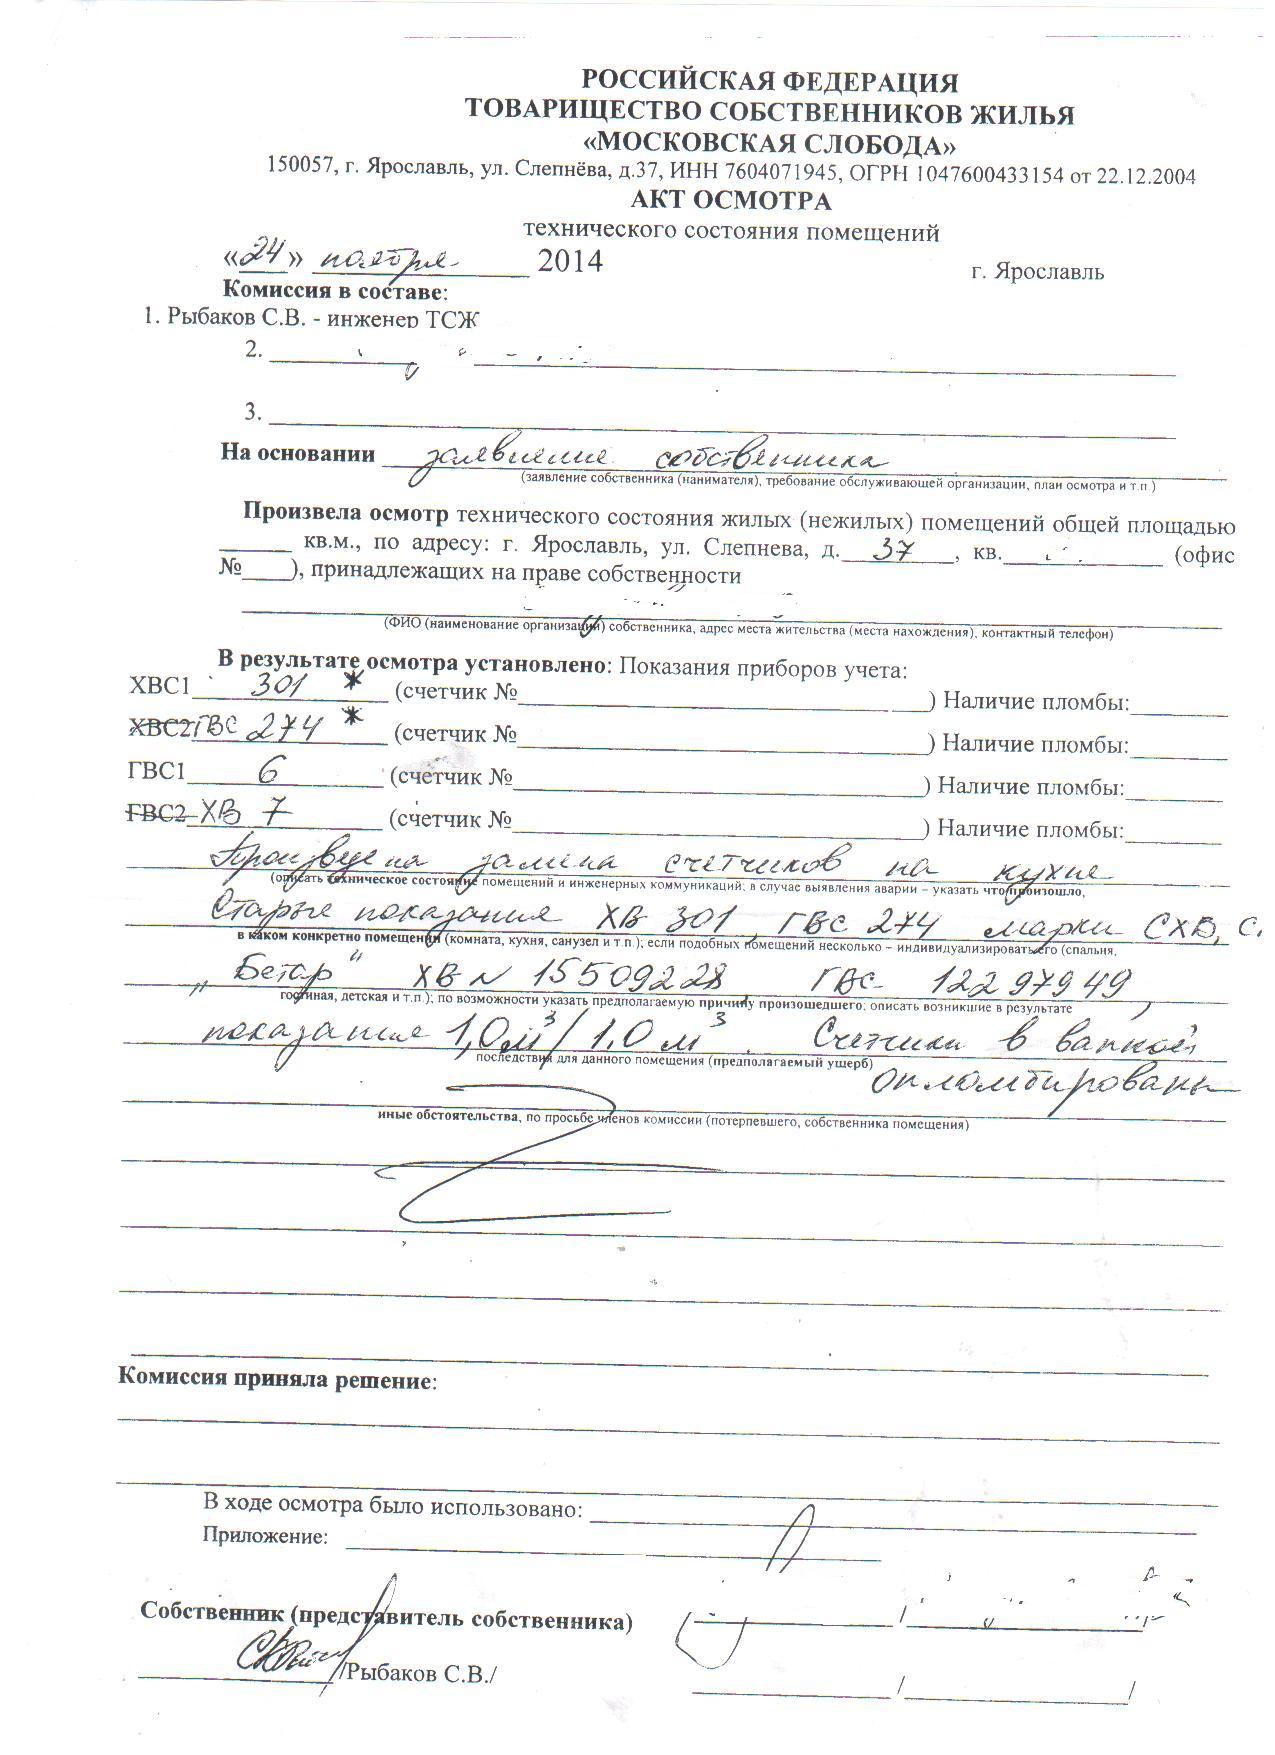 РОССИЙСКАЯ ФЕДЕРАЦИЯ
ТОВАРИЩЕСТВО СОБСТВЕННИКОВ ЖИЛЬЯ
«МОСКОВСКАЯ СЛОБОДА»
150057, г. Ярославль, ул. Слепнёва, д.37, ИНН 7604071945, ОГРН 1047600433154 от 22.12.2004
АКТ ОСМОТРА
технического состояния помещений
«24» ноября 2014 г. Ярославль
Комиссия в составе:
1. Рыбаков С.В. - инженер ТСЖ
2.
3.
На основании заявления собственника
(заявление собственника (нанимателя), требование обслуживающей организации, план осмотра и т.п.)
Произвела осмотр технического состояния жилых (нежилых) помещений общей площадью
______ кв.м., по адресу: г. Ярославль, ул. Слепнева, д. 37, кв.______ (офис
№____), принадлежащих на праве собственности
(ФИО (наименование организации) собственника, адрес места жительства (места нахождения), контактный телефон)
В результате осмотра установлено: Показания приборов учета:
ХВС1 301 * (счетчик №______) Наличие пломбы:______
ХВС2 ГВС 274 * (счетчик №______) Наличие пломбы:______
ГВС1 6 (счетчик №______) Наличие пломбы:______
ГВС2 ХВ 7 (счетчик №______) Наличие пломбы:______
Произведена замена счетчиков на кухне
(описать техническое состояние помещений и инженерных коммуникаций; в случае выявления аварии – указать что произошло,
Старые показания ХВ 301, ГВС 274 марки СХВ, С.
в каком конкретно помещении (комната, кухня, санузел и т.п.); если подобных помещений несколько – индивидуализировать его (спальня,
„Бетар" ХВ № 15509228 ГВС 12297949,
гостиная, детская и т.п.); по возможности указать предполагаемую причину произошедшего; описать возникшие в результате
показания 1,0 м³/1,0 м³. Счетчики в ванной
последствия для данного помещения (предполагаемый ущерб)
опломбированы
иные обстоятельства, по просьбе членов комиссии (потерпевшего, собственника помещения)
Комиссия приняла решение:
В ходе осмотра было использовано:
Приложение:
Собственник (представитель собственника) ______/______/
______/Рыбаков С.В./ ______/______/